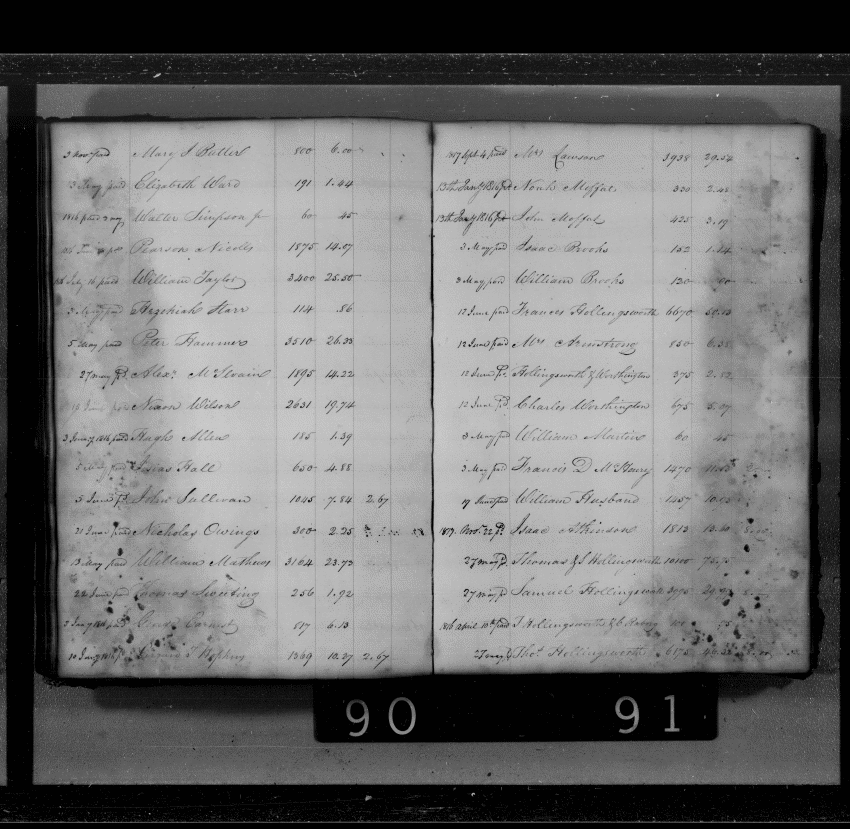 3 Nov paid Mary S Butler 800 6.00
3 Jany paid Elizabeth Ward 191 1.44
1816 paid 3 may Walter Simpson jr 60 45
Pearson Nicolls 1875 14.07
July 16 paid William Taylor 3400 25.50
3 May paid Hezekiah Starr 114 .86
5 May paid Peter Hammer 3510 26.33
27 may pd. Alexr. McIlvain 1895 14.22
19 June paid Nixon Wilson 2631 19.74
3 Jany 1816 paid Hugh Allen 185 1.39
5 May paid Josias Hall 650 4.88
5 June pd. John Sullivan 1045 7.84 2.67
21 June paid Nicholas Owings 300 2.25
13 May paid William Mathews 3164 23.73
22 June paid Thomas Sweeting 256 1.92
Earnest 817 6.13
10 Jany Hopkins 1369 10.27 2.67
1817 Sept 4 paid Mrs Lawson 3938 29.54
13th Jany 1816 pd Noah Moffat 330 2.48
13th Jany 1816 pd John Moffat 425 3.19
3 May paid Isaac Brooks 152 1.14
3 May paid William Brooks 120 .90
12 June paid Frances Hollingsworth 6670 50.03
12 June paid Mrs Armstrong 850 6.38
12 June pd. Hollingsworth & Worthington 375 2.82
12 June pd. Charles Worthington 675 5.07
3 May paid William Martin 60 45
3 May pd Francis D McHenry 1470 11.03
19 June paid William Husband 1457
1817. Novr. 22 pd. Isaac Atkinson 1813 13.60
27 may pd. Thomas & S Hollingsworth 10100 75.75
27 may pd Samuel Hollingsworth 3975
1816 april 10th paid J Hollingsworth & C 100 75
27 may pd Thos. Hollingsworth 6175
90 91